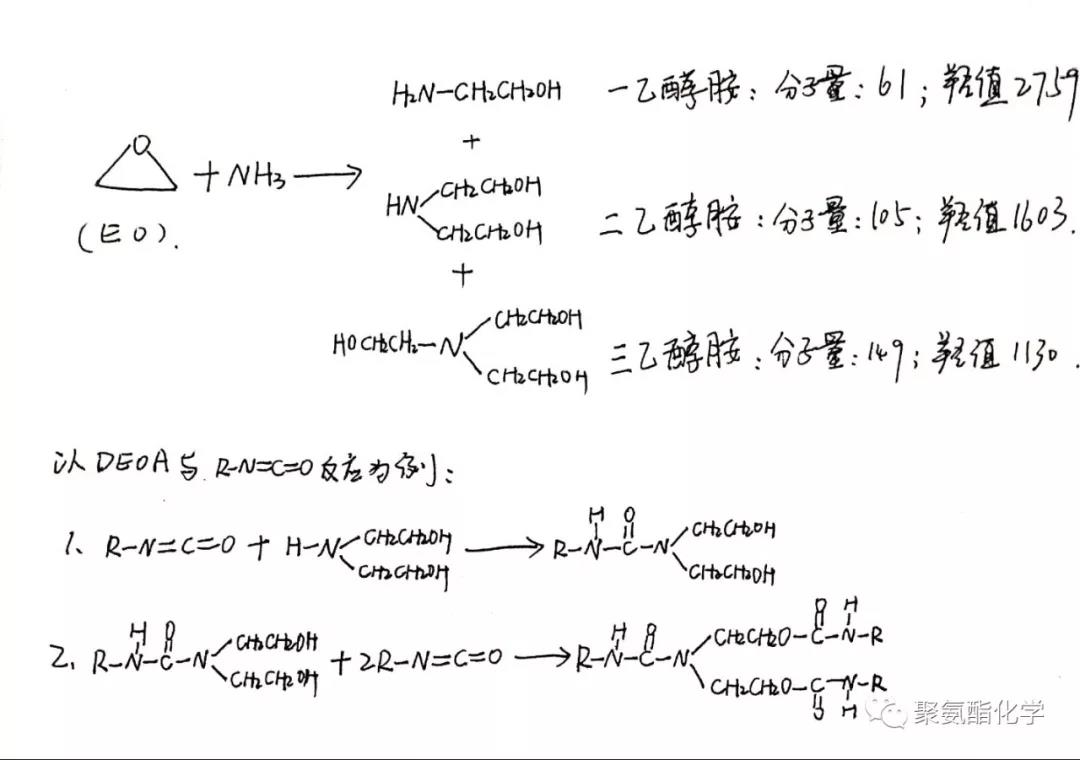 H2N-CH2CH2OH 一乙醇胺：分子量：61；羟值2759
+
O
+ NH3 ⟶
(EO).
HN CH2CH2OH CH2CH2OH 二乙醇胺：分子量：105；羟值1603.
+
HOCH2CH2-N CH2CH2OH CH2CH2OH 三乙醇胺：分子量：149；羟值1130.
以DEOA与R-N=C=O反应为例：
1、R-N=C=O + H-N CH2CH2OH CH2CH2OH ⟶ R-N-C-N H O CH2CH2OH CH2CH2OH
2、R-N-C-N H O CH2CH2OH CH2CH2OH + 2R-N=C=O ⟶ R-N-C-N H O CH2CH2O-C-N-R O H CH2CH2O-C-N-R O H
聚氨酯化学